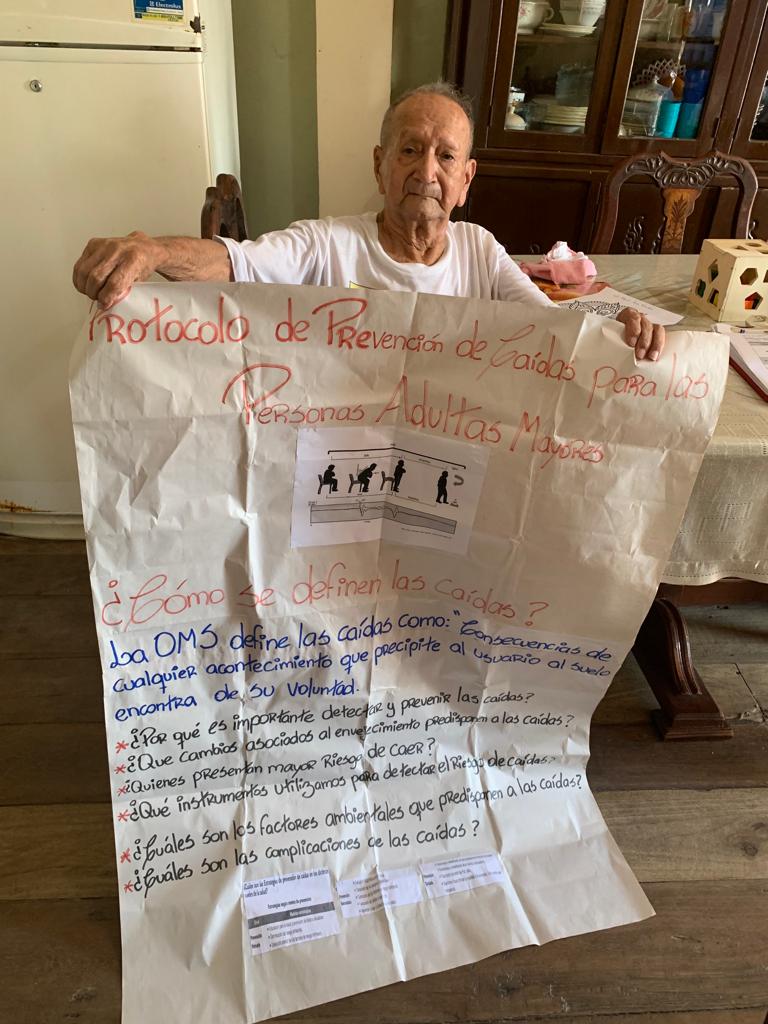 Electrolux
Protocolo de Prevención de Caídas para las
Personas Adultas Mayores
¿Cómo se definen las caídas?
La OMS define las caídas como: "Consecuencias de
cualquier acontecimiento que precipite al usuario al suelo
encontra de su voluntad.
*¿Por qué es importante detectar y prevenir las caídas?
*¿Que cambios asociados al envejecimiento predisponen a las caídas?
*¿Quienes presentan mayor Riesgo de caer?
*¿Qué instrumentos utilizamos para detectar el Riesgo de caídas?
*¿Cuáles son los factores ambientales que predisponen a las caídas?
*¿Cuáles son las complicaciones de las caídas?